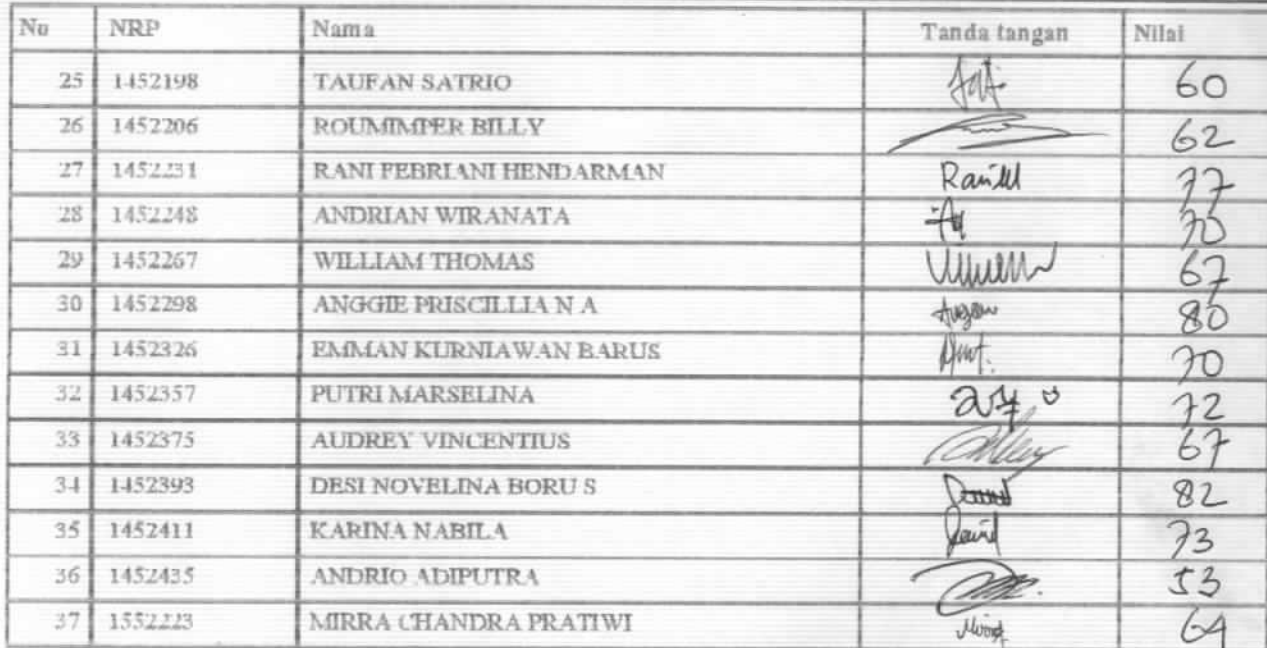 No NRP Nama Tanda tangan Nilai
25 1452198 TAUFAN SATRIO 60
26 1452206 ROUMIMPER BILLY 62
27 1452231 RANI FEBRIANI HENDARMAN 77
28 1452248 ANDRIAN WIRANATA 70
29 1452267 WILLIAM THOMAS 67
30 1452298 ANGGIE PRISCILLIA N A 80
31 1452326 EMMAN KURNIAWAN BARUS 70
32 1452357 PUTRI MARSELINA 72
33 1452375 AUDREY VINCENTIUS 67
34 1452393 DESI NOVELINA BORU S 82
35 1452411 KARINA NABILA 73
36 1452435 ANDRIO ADIPUTRA 53
37 1552223 MIRRA CHANDRA PRATIWI 64